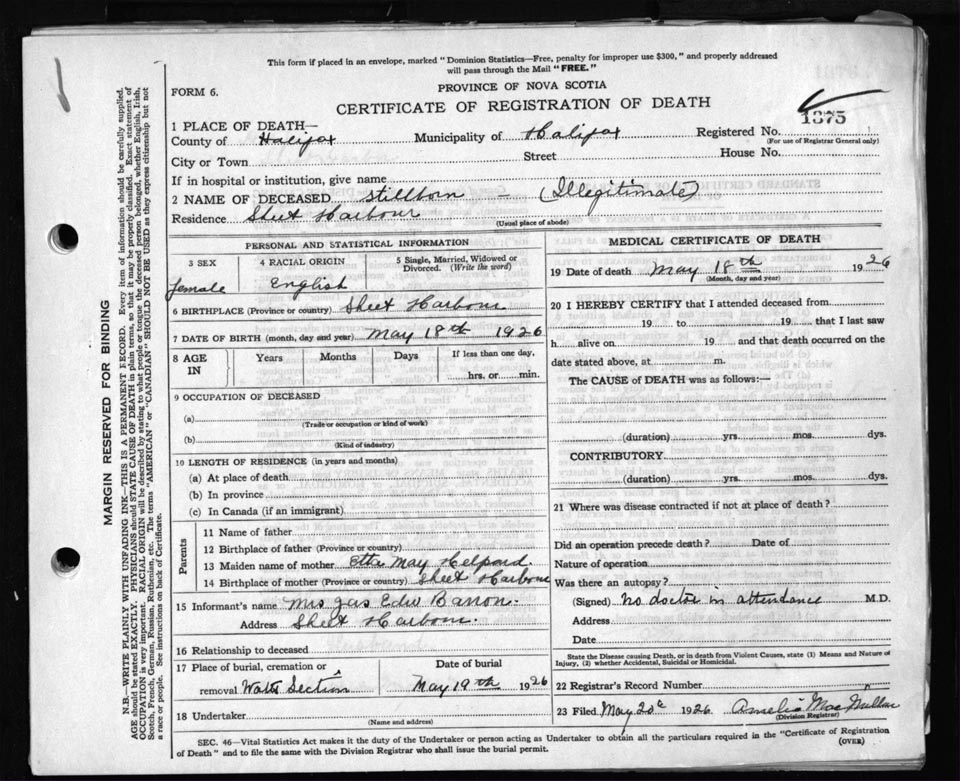 This form if placed in an envelope, marked "Dominion Statistics—Free, penalty for improper use $300," and properly addressed
will pass through the Mail "FREE."
PROVINCE OF NOVA SCOTIA
FORM 6.
CERTIFICATE OF REGISTRATION OF DEATH
1375
1 PLACE OF DEATH—
County of Halifax Municipality of Halifax Registered No.
(For use of Registrar General only)
City or Town Street House No.
If in hospital or institution, give name
2 NAME OF DECEASED stillborn — (Illegitimate)
Residence Sheet Harbour
(Usual place of abode)
PERSONAL AND STATISTICAL INFORMATION
3 SEX 4 RACIAL ORIGIN 5 Single, Married, Widowed or
Divorced. (Write the word)
female English
6 BIRTHPLACE (Province or country) Sheet Harbour
7 DATE OF BIRTH (month, day and year) May 18th 1926
8 AGE IN Years Months Days If less than one day,
hrs. or min.
9 OCCUPATION OF DECEASED
(a)
(Trade or occupation or kind of work)
(b)
(Kind of industry)
10 LENGTH OF RESIDENCE (in years and months)
(a) At place of death
(b) In province
(c) In Canada (if an immigrant)
Parents
11 Name of father
12 Birthplace of father (Province or country)
13 Maiden name of mother Etta May
14 Birthplace of mother (Province or country) Sheet Harbour
15 Informant's name Mrs Jas Edw Barron
Address Sheet Harbour.
16 Relationship to deceased
17 Place of burial, cremation or Date of burial
removal Section May 19th 1926
18 Undertaker
(Name and address)
MEDICAL CERTIFICATE OF DEATH
19 Date of death May 18th 1926
(Month, day and year)
20 I HEREBY CERTIFY that I attended deceased from
19 to 19 that I last saw
h alive on 19 and that death occurred on the
date stated above, at m.
The CAUSE of DEATH was as follows:—
(duration) yrs. mos. dys.
CONTRIBUTORY
(duration) yrs. mos. dys.
21 Where was disease contracted if not at place of death?
Did an operation precede death? Date of
Nature of operation
Was there an autopsy?
(Signed) No doctor in attendance M.D.
Address
Date
State the Disease causing Death, or in death from Violent Causes, state (1) Means and Nature of
Injury, (2) whether Accidental, Suicidal or Homicidal.
22 Registrar's Record Number
23 Filed May 20th 1926 Amelia
(Division Registrar)
SEC. 46—Vital Statistics Act makes it the duty of the Undertaker or person acting as Undertaker to obtain all the particulars required in the "Certificate of Registration
of Death" and to file the same with the Division Registrar who shall issue the burial permit. (OVER)
MARGIN RESERVED FOR BINDING
N.B.—WRITE PLAINLY WITH UNFADING INK—THIS IS A PERMANENT RECORD. Every item of information should be carefully supplied.
AGE should be stated EXACTLY. PHYSICIANS should STATE CAUSE OF DEATH in plain terms, so that it may be properly classified. Exact statement of
OCCUPATION is very important. RACIAL ORIGIN will be described by stating to what people or tongue the deceased person belonged, whether English, Irish,
Scotch, French, German, Russian, Ruthenian, etc. The terms "AMERICAN" or "CANADIAN" SHOULD NOT BE USED as they express citizenship but not
a race or people. See instructions on back of Certificate.